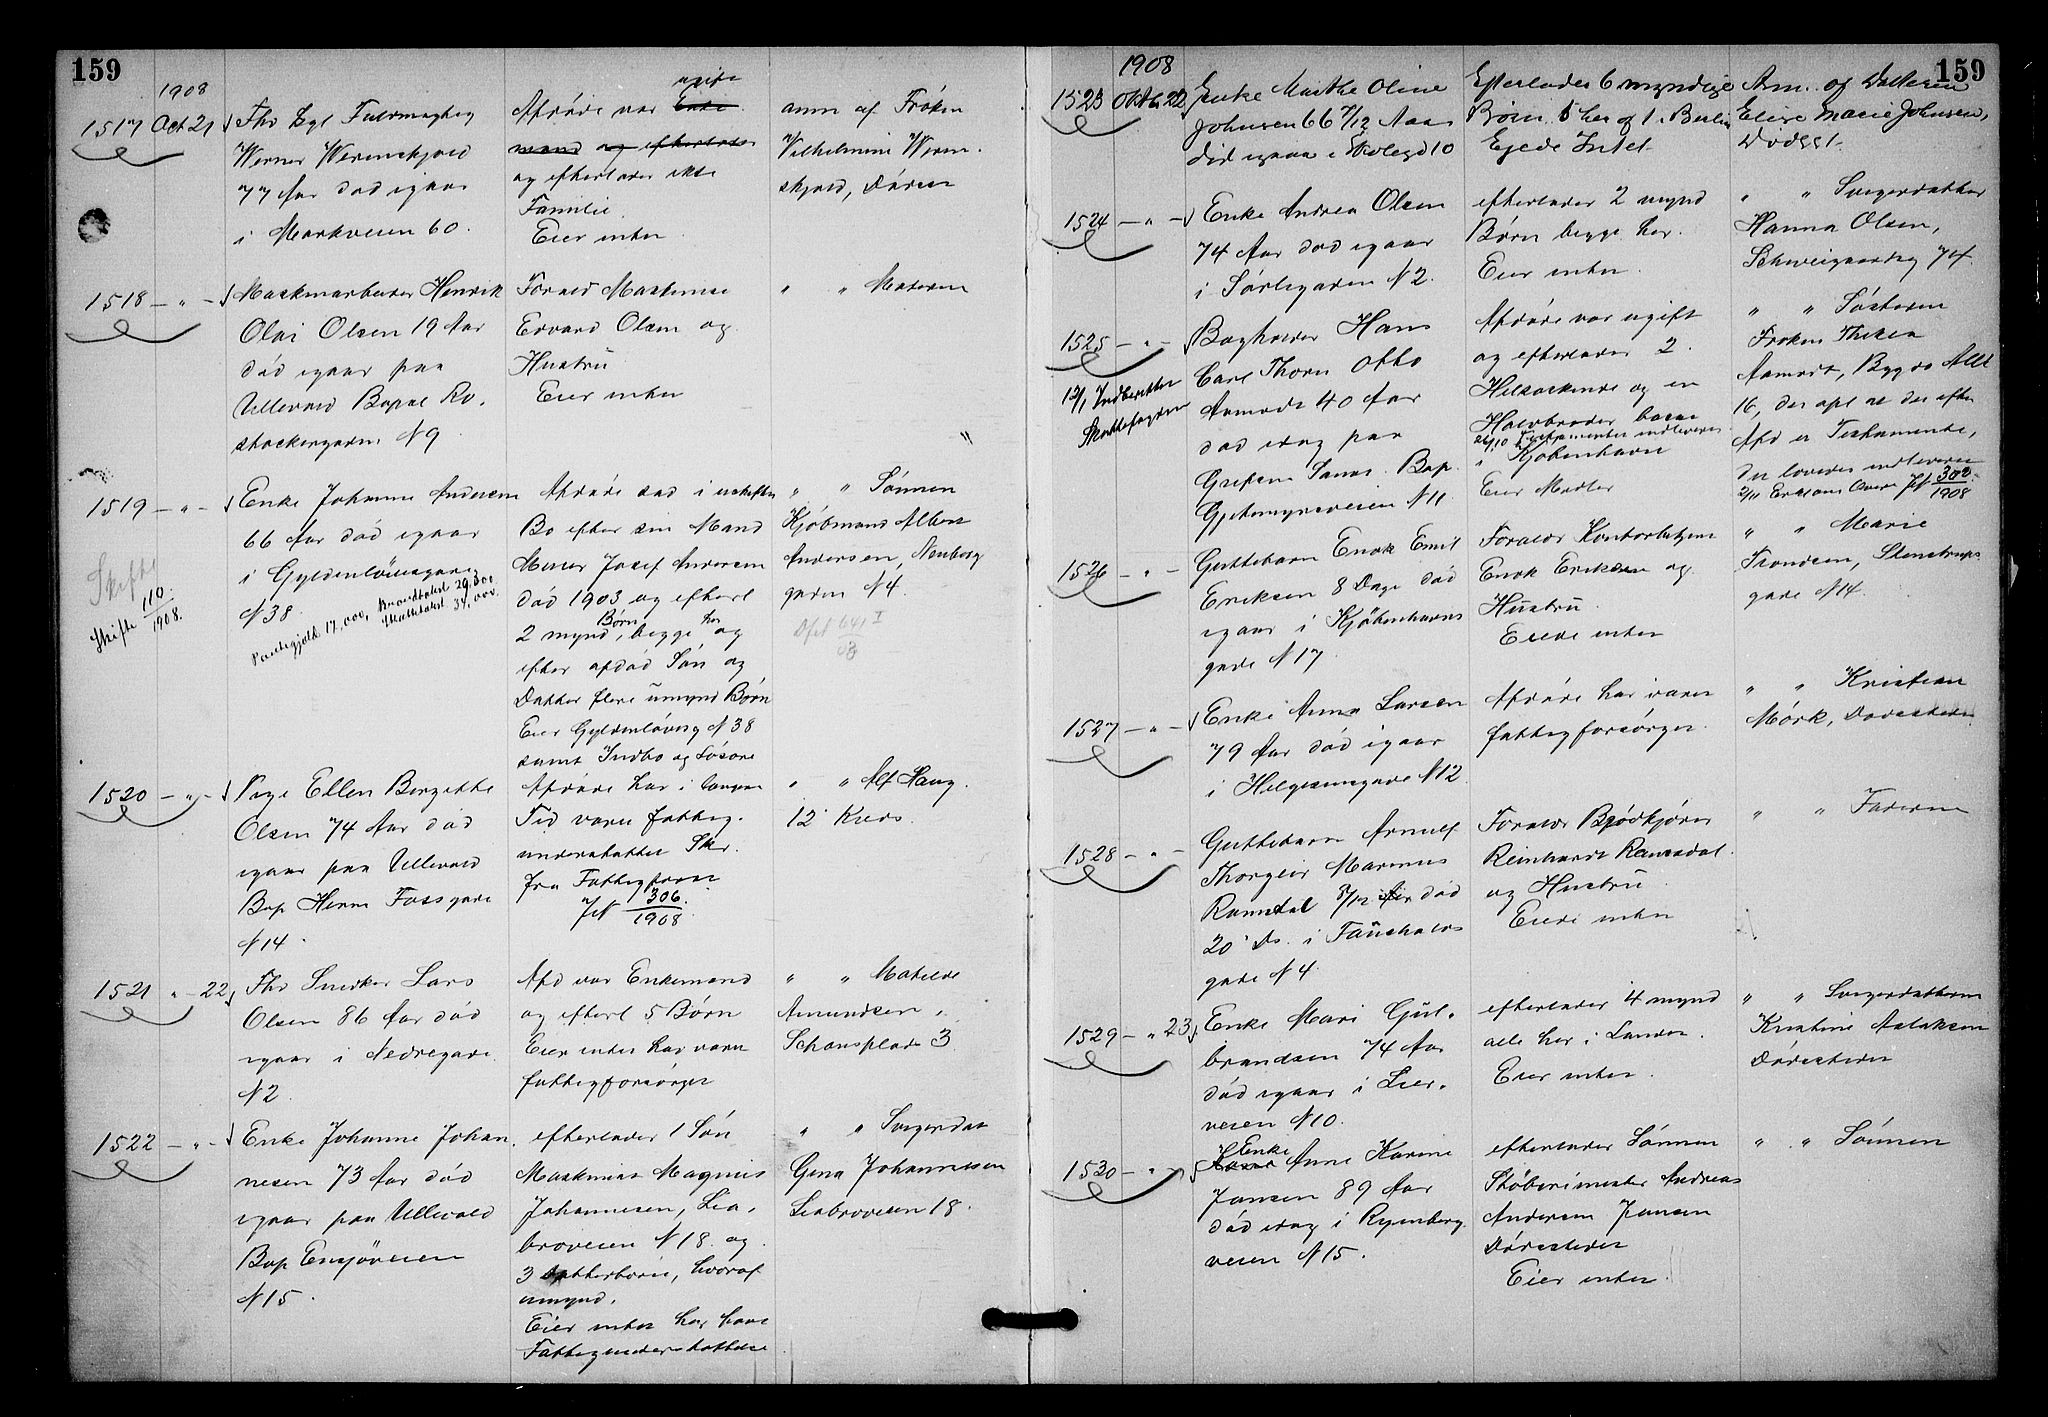 159
1908
1517 Oct 21 Fhv Fuldmægtig
Werner Werenskjold
77 Aar død igaar
i Markveien 60.
ugift
Afdøde var Enke
mand og efterlader
og efterlader ikke
Familie.
Eier intet
anm af Frøken
Vilhelmine Weren-
skjold, Dørsen
1518 — " — Maskinarbeider Henrik
Olai Olsen 19 Aar
død igaar paa
Ullevaal Bopæl Ro-
stockergaden N 9
Forældre Maskinist
Edvard Olsen og
Hustru
Eier intet
" " Moderen
1519 — " — Enke Johanne Andersen
66 Aar død igaar
i Gyldenløvesgade
N 38
Skifte
Skifte 110/1908.
Pantegjæld 17,000, Brandtakst 29,300
Skattetakst 34,000.
Afdøde sad i uskiftet
Bo efter sin Mand
Murer Josef Andersen
død 1903 og efterl
2 mynd Børn, begge her og
efter afdød Søn og
Datter flere umynd Børn
Eier Gyldenløvesg N 38
samt Indbo og Løsøre
" " Sønnen
Kjøbmand Albert
Andersen, Neuberg
gaden N 4
1520 — " — Pige Ellen Birgitte
Olsen 74 Aar død
igaar paa Ullevaal
Bop Herm Fossgade
N 14.
Afdøde har i længere
Tid været fattig-
understøttet
fra Fattigvæsen
JN 306/1908
" " Alf Haug.
12 Kreds.
1521 " — 22 Fhv Snedker Lars
Olsen 86 Aar død
igaar i Nedregade
N 2
Afd var Enkemand
og efterl 5 Børn
Eier intet har været
fattigforsørget
" " Matilde
Amundsen,
Schousplads 3
1522 — " — Enke Johanne Johan
nesen 73 Aar død
igaar paa Ullevaal
Bop Ensjøveien
N 15.
efterlader 1 Søn
Maskinist Magnus
Johannesen, Lia-
broveien N 18 og
3 Datterbørn, hvoraf
umynd.
Eier intet har havt
Fattigunderstøttelse
" " Svigerdat
Gina Johannesen
Liabroveien 18.
159
1908
1523 Oktbr 22 Enke Marthe Oline
Johnsen 66 7/12 Aar
død igaar i Skolegd 10
Efterlader 6 myndige
Børn 5 her og 1 i Berlin
Ejede Intet
Anm. af Datteren
Elise Marie Johnsen,
Dødsst.
1524 — " — Enke Andrea Olsen
74 Aar død igaar
i Sørligaden N 2.
efterlader 2 mynd
Børn begge her.
Eier intet
" " Svigerdatter
Hanna Olsen,
Schweigaardsg 74
1525 — " — Bogholder Hans
Carl Thorn Otto
Aamodt 40 Aar
død idag paa
Grefsen Sanat. Bop.
Gjetemyrsveien N 11
12/1 Indberettet
Skattefogden
Afdøde var ugift
og efterlader 2
Helsøskende og en
Halvbroder bosat
26/10 Testamentet indleveres
i Kjøbenhavn
Eier Midler
" " Søsteren
Frøken Thesea
Aamodt, Bygdø Allé
16, der opl at der efter
Afd er Testamente,
der loves indleveret
JN 302/1908
1526 — " — Guttebarn Enok Emil
Eriksen 8 Dage død
igaar i Kjøbenhavns
gade N 17
Forældre Kontorbetjent
Enok Eriksen og
Hustru.
Eiede intet
" " Marie
Trondsen, Stenstrups
gade N 14.
1527 — " — Enke Anna Larsen
79 Aar død igaar
i Helgesensgade N 12
Afdøde har været
fattigforsørget.
" " Kristian
Mörk, Dødsstedet
1528 — " — Guttebarn Arnulf
Thorgeir Marenus
Ramsdal 5/12 Aar død
20 ds. i Fauchalds
gade N 4.
Forældre Bjødkjører
Reinhardt Ramsdal
og Hustru
Eiede intet
" " Faderen
1529 — " 23 Enke Mari Gul-
brandsen 74 Aar
død igaar i Lier-
veien N 10.
efterlader 4 mynd
alle her i Landet.
Eier intet.
" " Svigerdatteren
Kristine Aslaksen
Dødsstedet
1530 — " — Enke
Anne Karine
Jansen 89 Aar
død idag i Ryenberg
veien N 15.
efterlader Sønnen
Støberimester Andreas
Andersen Jansen
Dødsstedet
Eier intet.
" " Sønnen